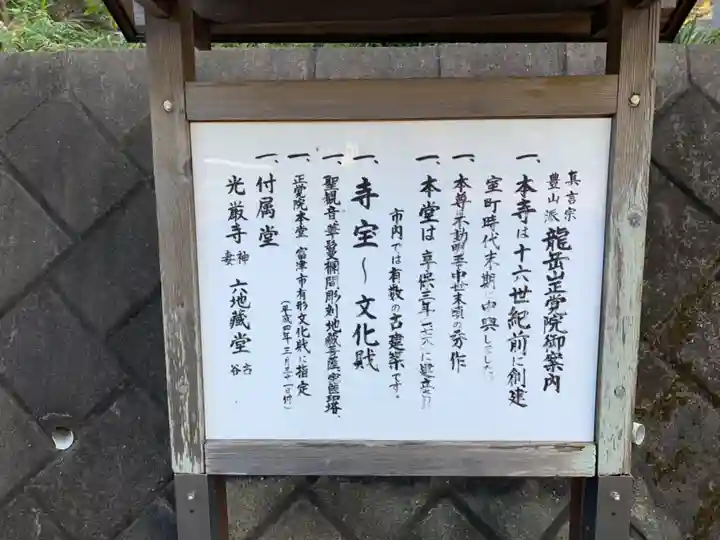 真言宗
豊山派 龍岳山正覚院御案内
一、本寺は十六世紀前に創建
室町時代末期に中興しました。
一、本尊不動明王中世末頃の秀作
一、本堂は享保三年一七一八に建立
市内では有数の古建築です。
一、寺宝〜文化財
一、聖観音華鬘欄間彫刻地蔵菩薩宝篋印塔、
一、正覚院本堂 富津市有形文化財に指定
(平成四年三月三十一日付)
一、付属堂
光厳寺 神妻 六地蔵堂 古谷